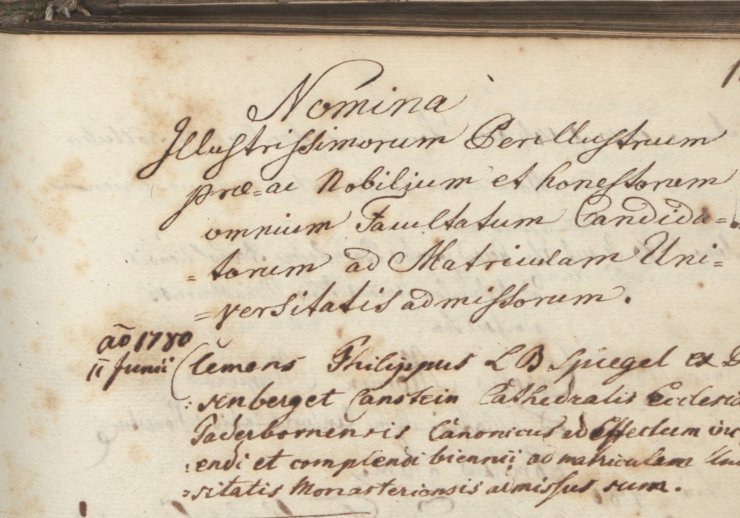 Nomina
Illustrissimorum Perillustrium
præ=ac Nobilium et honestorum
omnium Facultatum Candida=
=torum ad Matriculam Uni=
=versitatis admissorum.
aõ 1780
11 Junii Clemens Philippus L B Spiegel ex D
:senberg et Canstein Cathedralis Ecclesiæ
Paderbornensis Canonicus ad effectum inc
:endi et complendi biennii ad matriculam Uni
:sitatis Monasteriensis admissus sum.